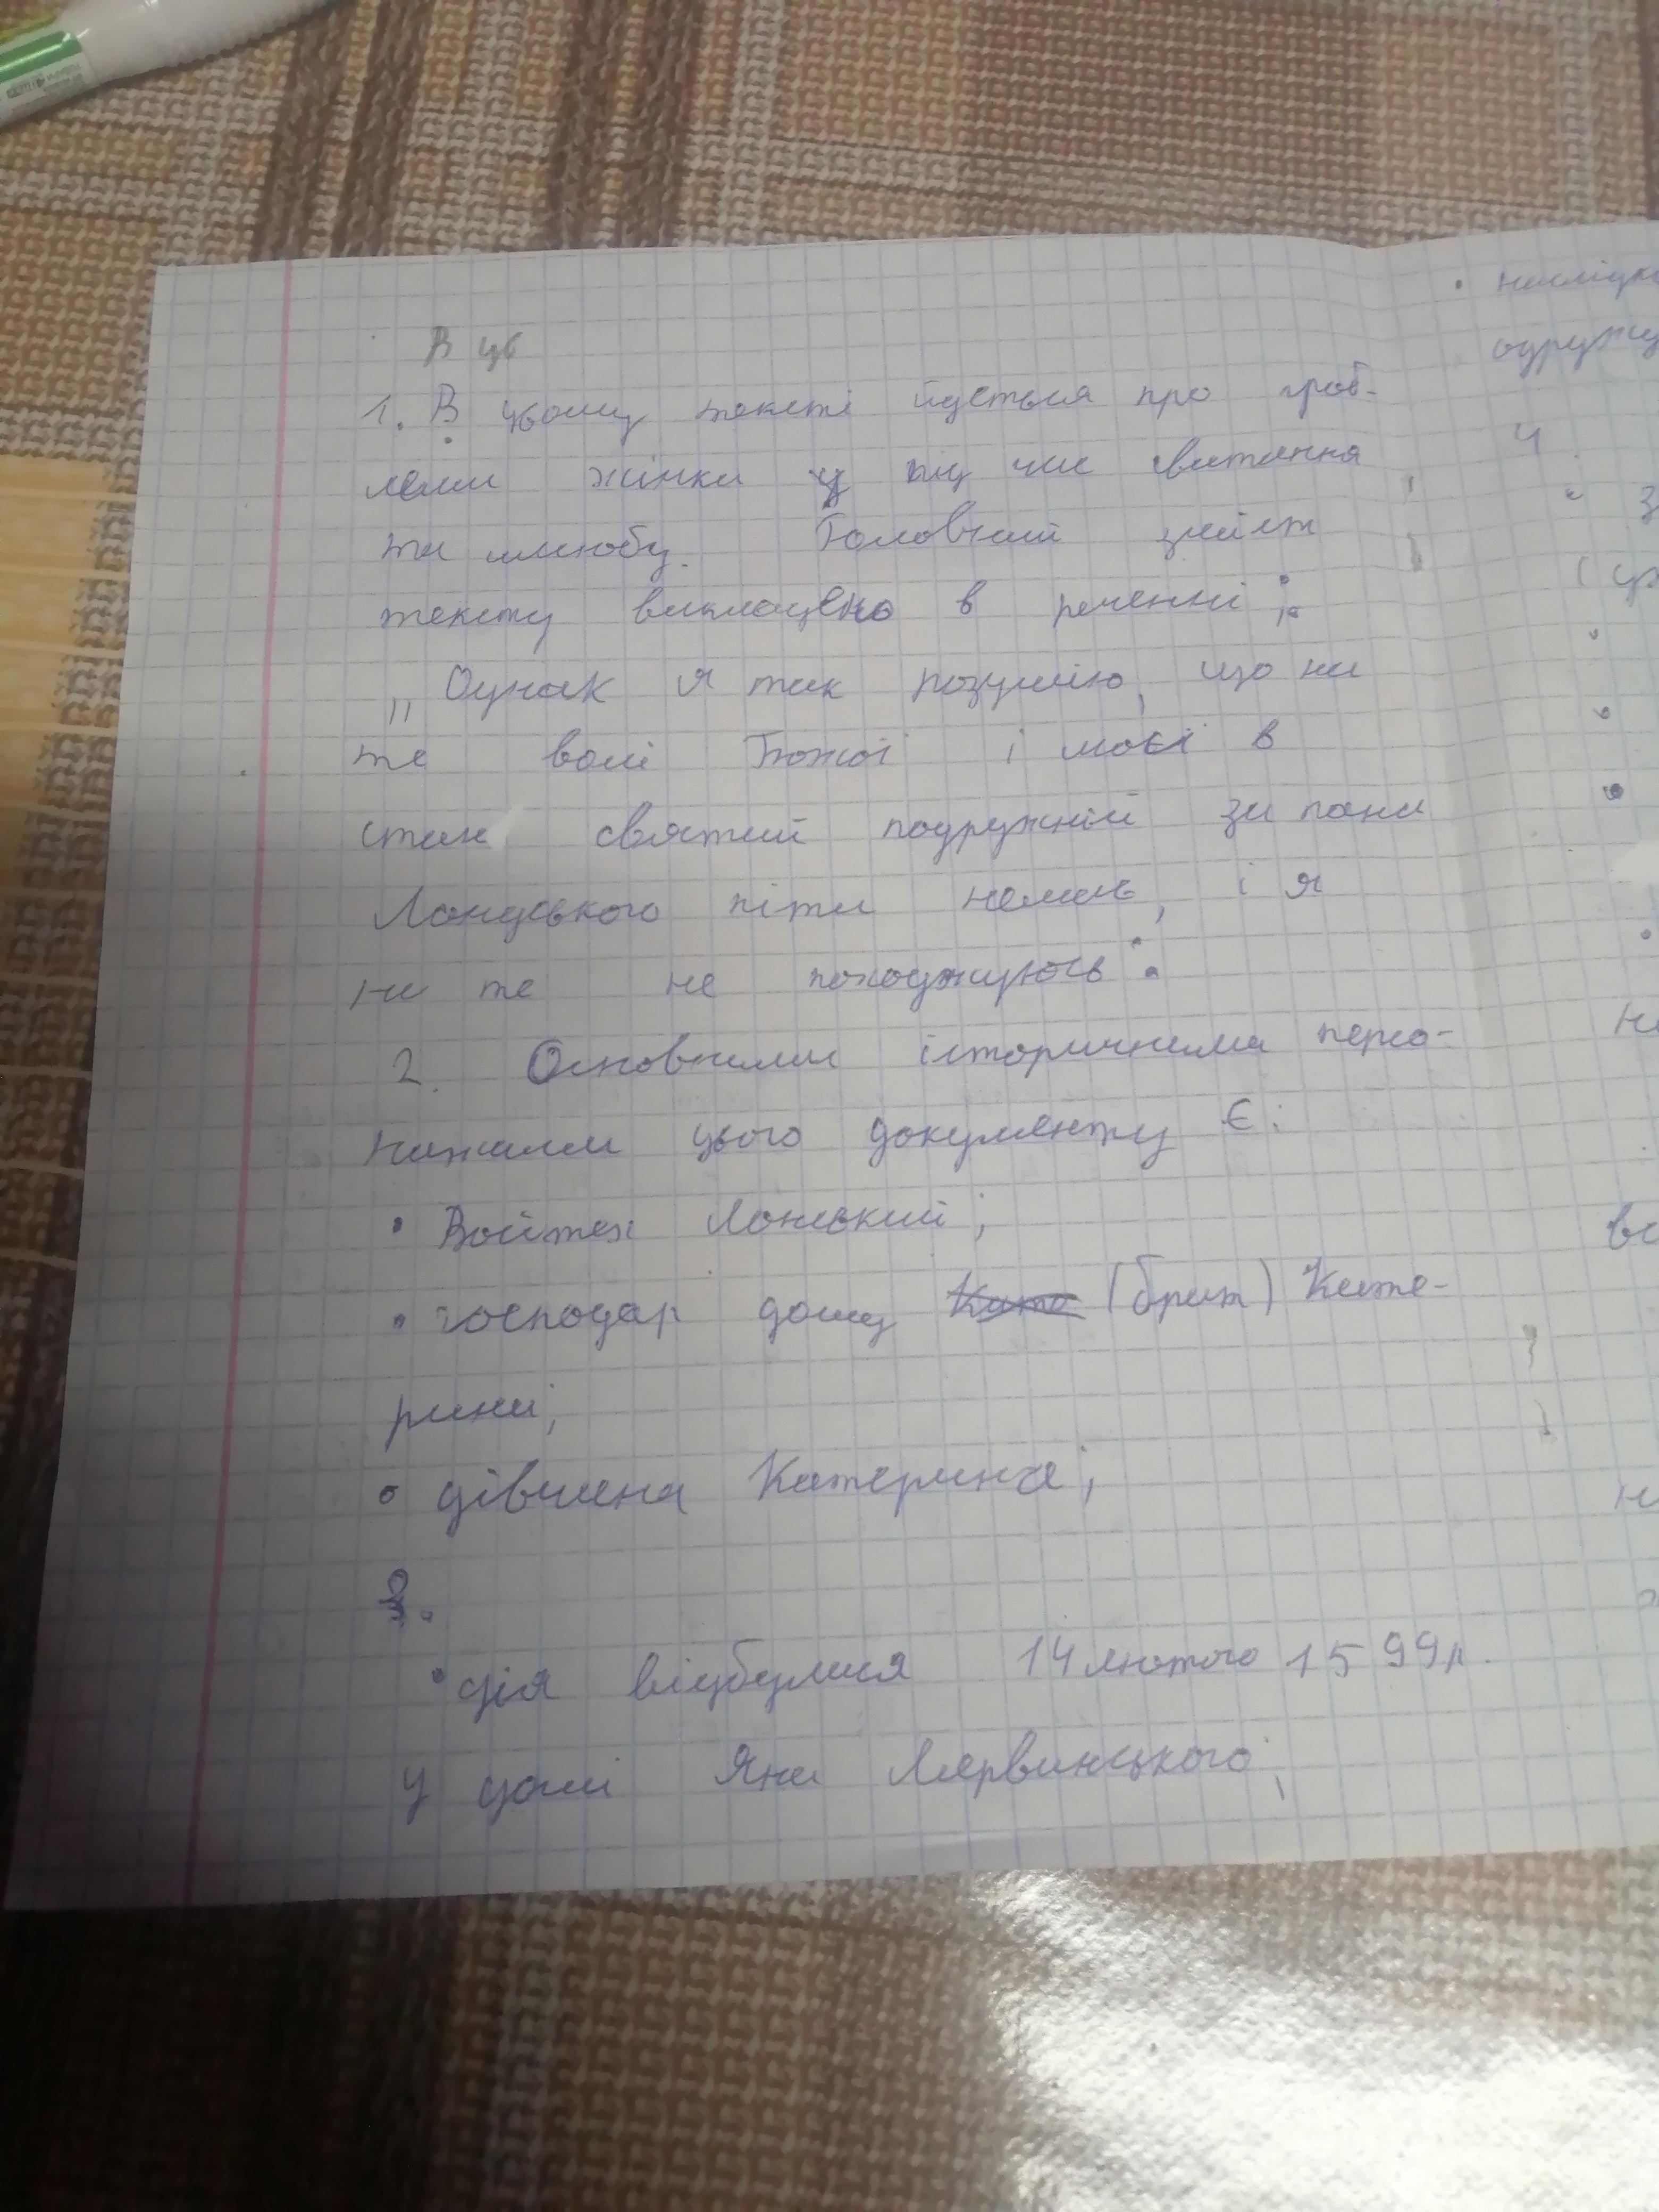 В ць
1. В цьому тексті йдеться про проб-
леми жінки у під час сватання
та шлюбу. Головний зміст
тексту викладено в реченні:
„Однак я так розумію, що на
те волі Божої і моєї в
стан святий подружній за пана
Лондського піти немає, і я
на те не погоджуюсь".
2. Основними історичними персо-
нажами цього документу є:
• Войтех Лонський;
• господар дому (брат) Кате-
рини;
• дівчина Катерина;
3.
• дія відбулася 14 лютого 1599р.
у домі Яна Мервинського,
одружу
4.